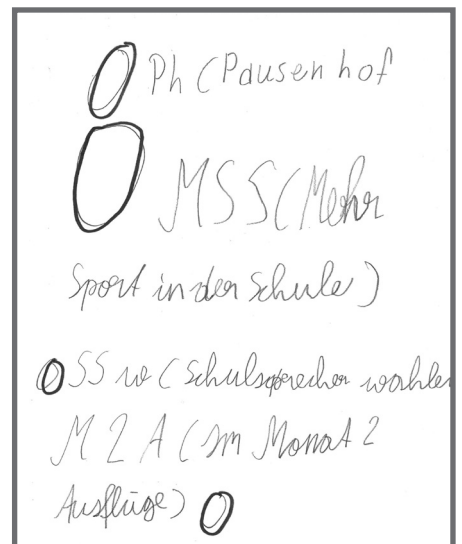 Ph (Pausenhof
MSS (Mehr
Sport in der Schule)
SS w (Schulsprecher wählen
M 2 A (Im Monat 2
Ausflüge)